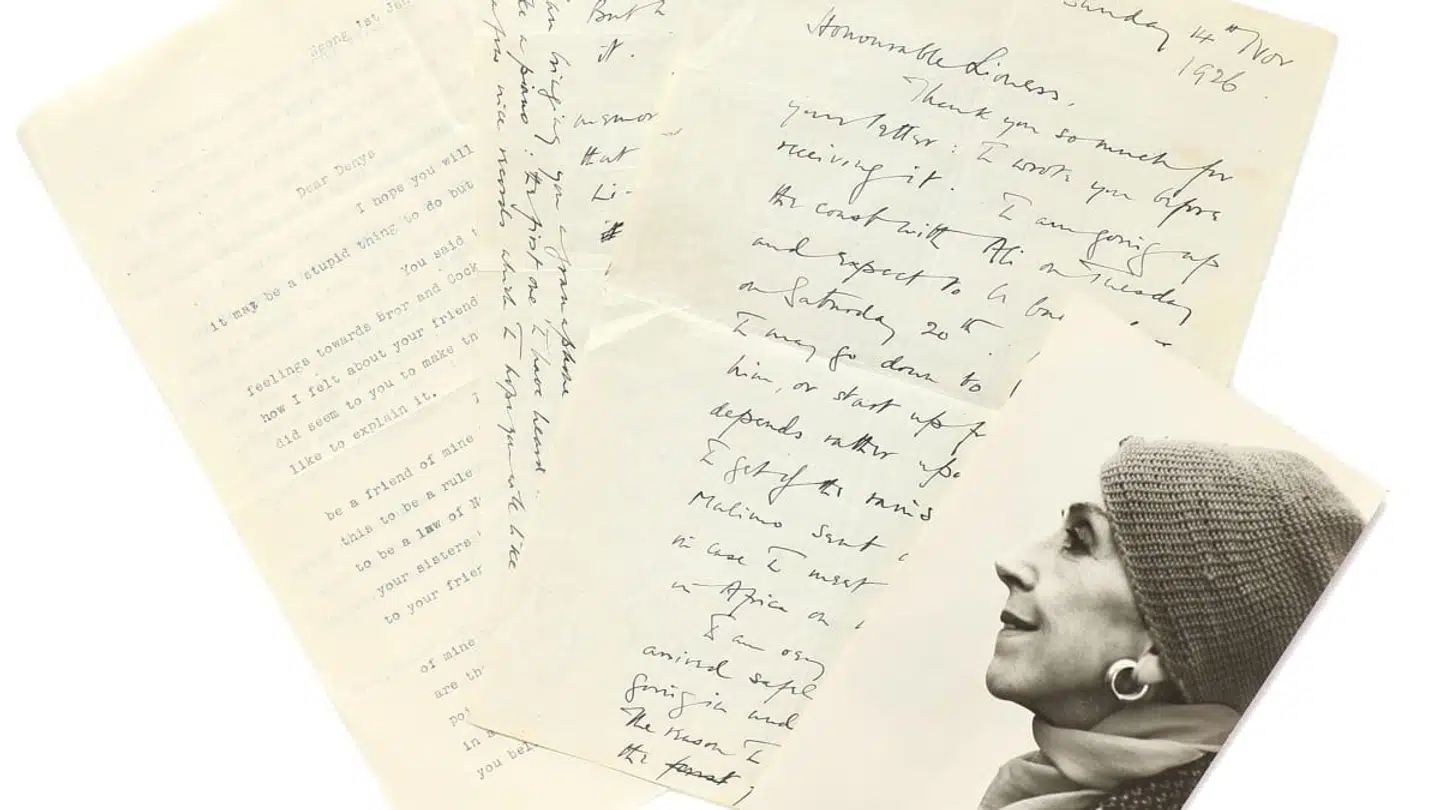 Ngong 1st Jan
Dear Denys
I hope you will
it may be a stupid thing to do but
You said t
feelings towards Bror and Cock
how I felt about your friend
did seem to you to make th
like to explain it.
be a friend of mine
this to be a rule
to be a law of N
your sisters
to your frien
of mine
are th
poi
in a
you bel
am bringing you a gramophone
like a piano: the first one I have heard.
a few nice records which I hope you will like
But I
it.
memor
that
Li-
Sunday 14th Nov
1926.
Honourable Lioness,
Thank you so much for
your letter: I wrote you before
receiving it. I am going up
the coast with Ali on Tuesday
and expect to be ba
on Saturday 20th.
I may go down to
him, or start up f
depends rather upo
I get of the rains
Malimo sent
in case I meet
in Africa on
I am
arrived safel
going in and
The reason I
the